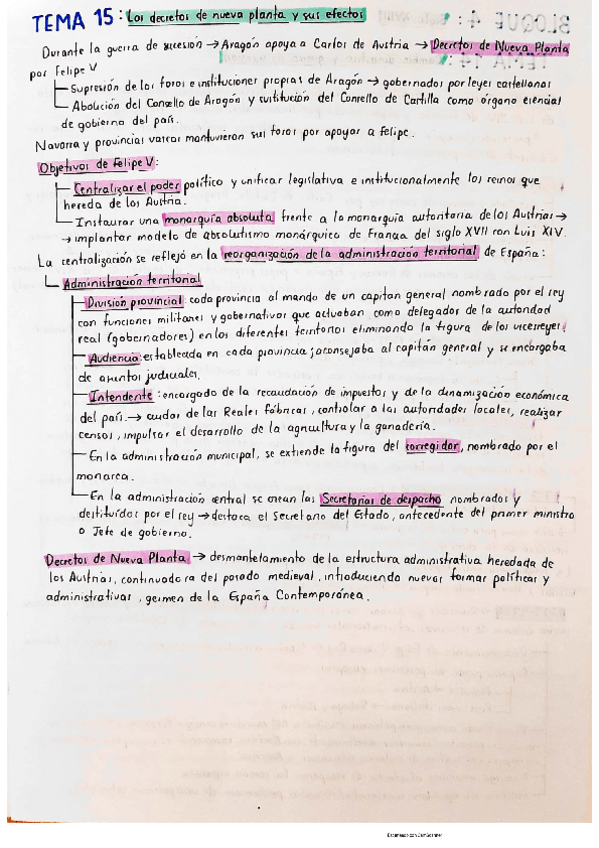 TEMA 15: Los decretos de nueva planta y sus efectos
Durante la guerra de sucesión → Aragón apoya a Carlos de Austria → Decretos de Nueva Planta
por Felipe V
Supresión de los foros e instituciones propias de Aragón → gobernados por leyes castellanas
Abolición del Consello de Aragón y sustitución del Consello de Castilla como órgano esencial
de gobierno del país.
Navarra y provincias vascas mantuvieron sus foros por apoyar a Felipe.
Objetivos de Felipe V:
Centralizar el poder político y unificar legislativa e institucionalmente los reinos que
hereda de los Austria.
Instaurar una monarquía absoluta frente a la monarquía autoritaria de los Austrias →
→ implantar modelo de absolutismo monárquico de Francia del siglo XVII con Luis XIV.
La centralización se reflejó en la reorganización de la administración territorial de España:
Administración territorial
División provincial: cada provincia al mando de un capitan general nombrado por el rey
con funciones militares y gobernativas que actuaban como delegados de la autoridad
real (gobernadores) en los diferentes territorios eliminando la figura de los virreyes
Audiencia: establecida en cada provincia; aconsejaba al capitán general y se encargaba
de asuntos judiciales.
Intendente: encargado de la recaudación de impuestos y de la dinamización económica
del país. → cuidar de las Reales Fábricas, controlar a las autoridades locales, realizar
censos, impulsar el desarrollo de la agricultura y la ganadería.
En la administración municipal, se extiende la figura del corregidor, nombrado por el
monarca.
En la administración central se crean las Secretarías de despacho nombrados y
destituidos por el rey → destaca el Secretario del Estado, antecedente del primer ministro
o Jefe de gobierno.
Decretos de Nueva Planta → desmantelamento de la estructura administrativa heredada de
los Austrias, continuadora del pasado medieval, introduciendo nuevas formas políticas y
administrativas, germen de la España Contemporánea.
Escaneado con CamScanner